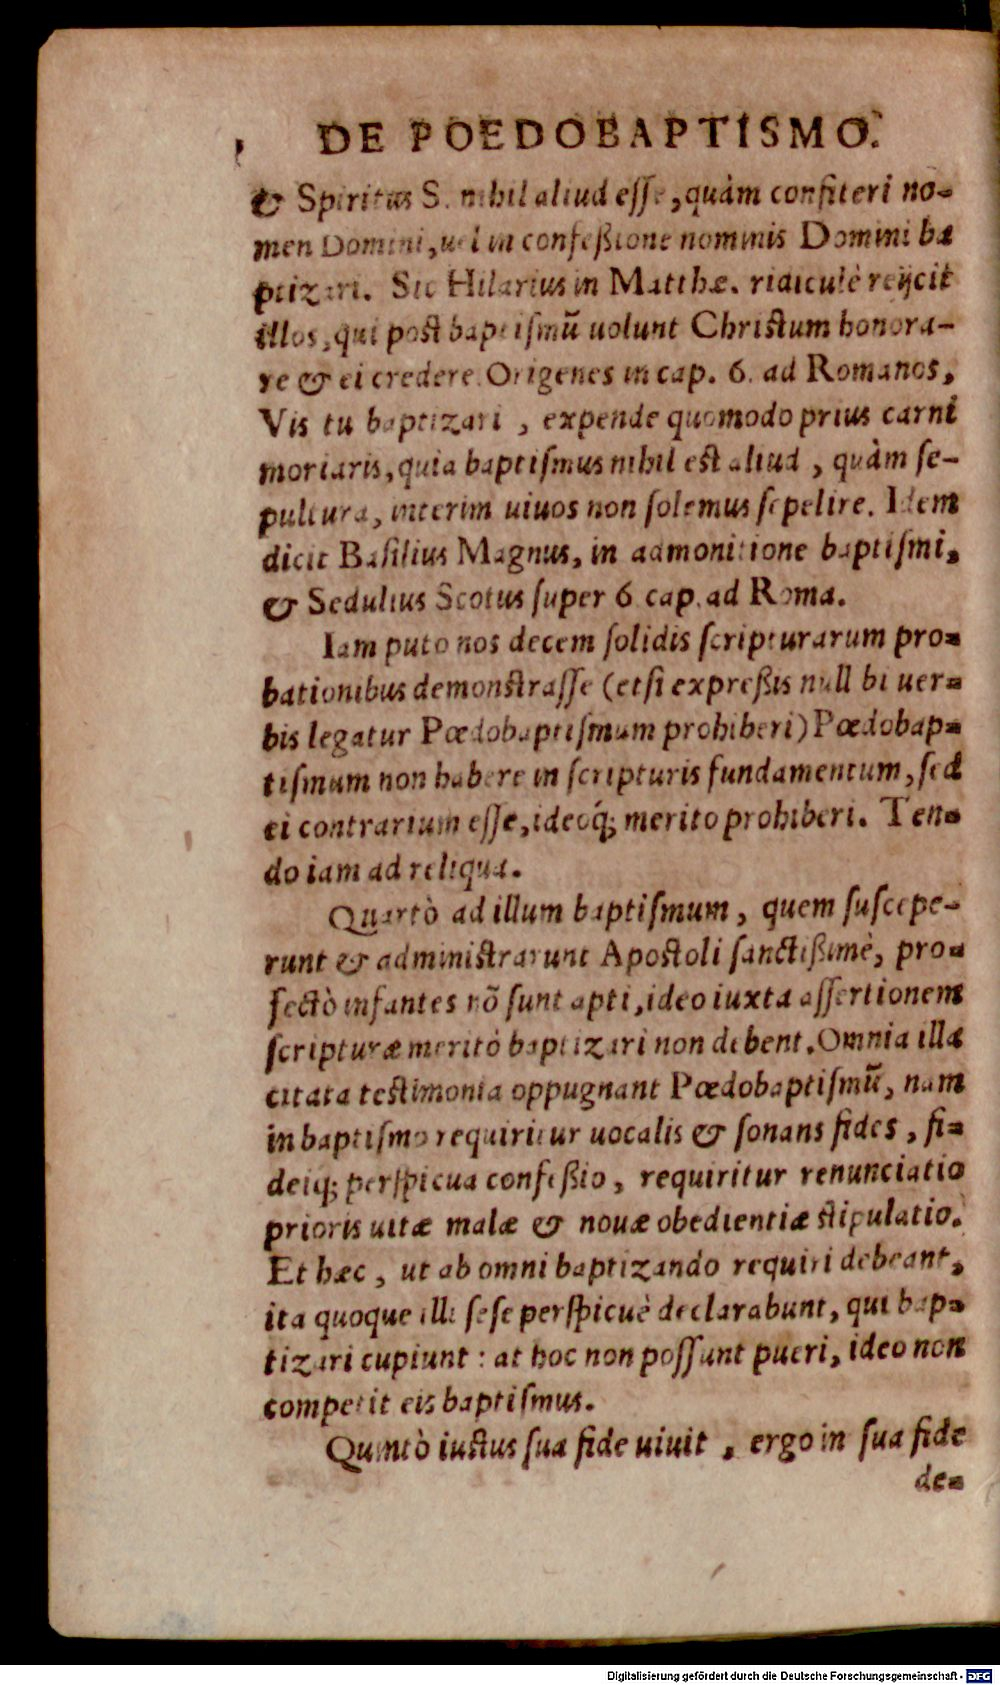 DE POEDOBAPTISMO.
& Spiritus S. nihil aliud eſſe, quàm confiteri no-
men Domini, uel in confeßione nominis Domini ba
ptizari. Sic Hilarius in Matthæ. ridiculè reijcit
illos, qui post baptiſmũ uolunt Christum honora-
re & ei credere. Origenes in cap. 6. ad Romanos,
Vis tu baptizari , expende quomodo prius carni
moriaris, quia baptiſmus nihil est aliud , quàm ſe-
pultura, interim uiuos non ſolemus ſepelire. Idem
dicit Baſilius Magnus, in admonitione baptiſmi,
& Sedulius Scotus ſuper 6 cap. ad Roma.
Iam puto nos decem ſolidis ſcripturarum pro-
bationibus demonstraſſe (etſi expreßis null bi uer-
bis legatur Pœdobaptiſmum prohiberi) Pœdobap-
tiſmum non habere in ſcripturis fundamentum, ſed
ei contrarium eſſe, ideoq́; merito prohiberi. Ten-
do iam ad reliqua.
Quartò ad illum baptiſmum, quem ſuſcepe-
runt & administrarunt Apostoli ſanctißimè, pro-
fectò infantes nõ ſunt apti, ideo iuxta aſſertionem
ſcripturæ meritò baptizari non debent. Omnia illa
citata testimonia oppugnant Pœdobaptiſmũ, nam
in baptiſmo requiritur uocalis & ſonans fides , fi-
deiq; perſpicua confeßio, requiritur renunciatio
prioris uitæ malæ & nouæ obedientiæ stipulatio.
Et hæc , ut ab omni baptizando requiri debeant,
ita quoque illi ſeſe perſpicuè declarabunt, qui bap-
tizari cupiunt : at hoc non poſſunt pueri, ideo non
competit eis baptiſmus.
Quintò iustus ſua fide uiuit , ergo in ſua fide
de-
Digitalisierung gefördert durch die Deutsche Forschungsgemeinschaft - DFG